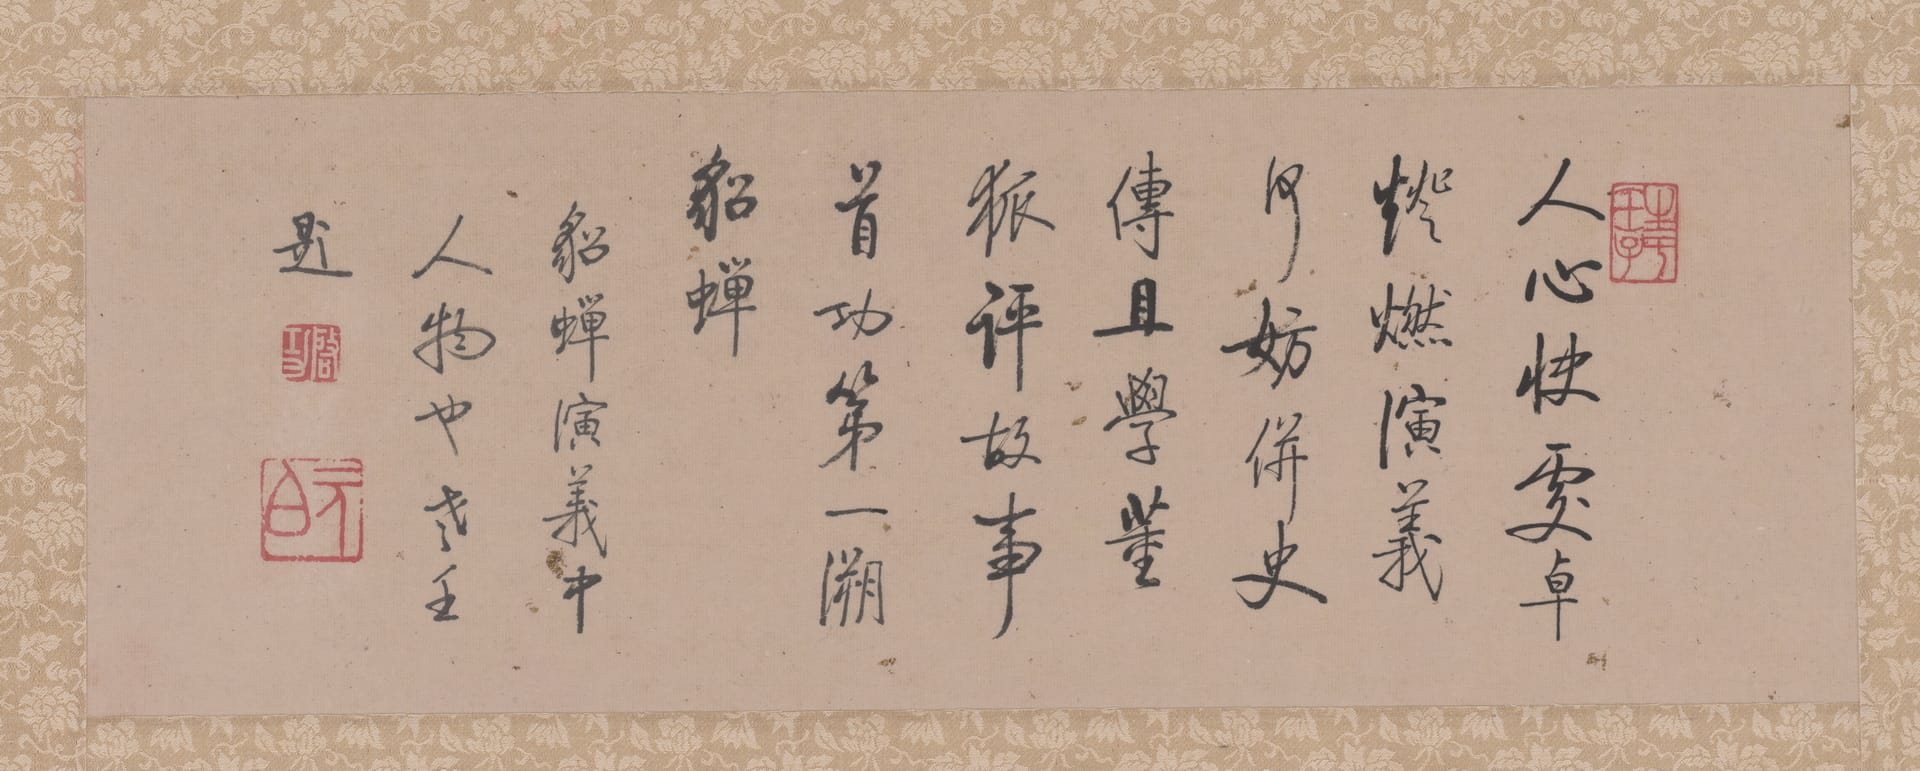 人心快處卓
燈燃演義
何妨併史
傳且學董
狐評故事
首功第一溯
貂蟬
貂蟬演義中
人物也老壬
題
啓功